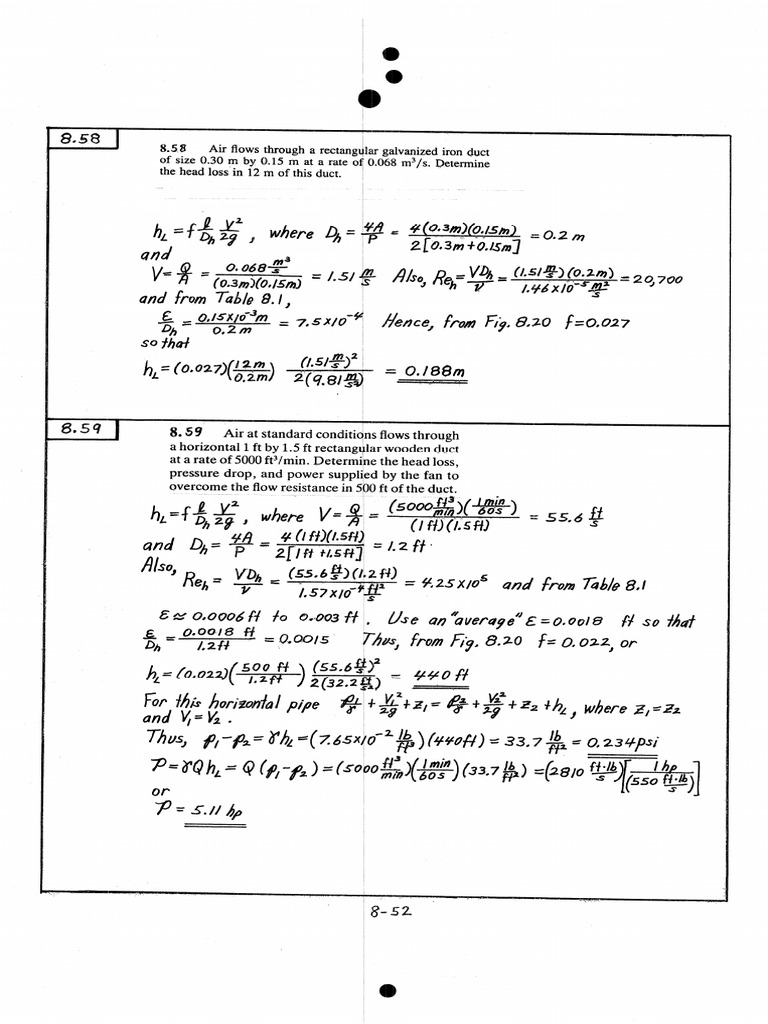 8.58
8.58 Air flows through a rectangular galvanized iron duct
of size 0.30 m by 0.15 m at a rate of 0.068 m³/s. Determine
the head loss in 12 m of this duct.
h_L = f l/D_h V²/2g , where D_h = 4A/P = 4(0.3m)(0.15m)/2[0.3m+0.15m] = 0.2 m
and
V = Q/A = 0.068 m³/s/(0.3m)(0.15m) = 1.51 m/s Also, Re_h = VD_h/ν = (1.51 m/s)(0.2m)/1.46×10⁻⁵ m²/s = 20,700
and from Table 8.1,
ε/D_h = 0.15×10⁻³m/0.2 m = 7.5×10⁻⁴ Hence, from Fig. 8.20 f=0.027
so that
h_L = (0.027)(12m/0.2m) (1.51 m/s)²/2(9.81 m/s²) = 0.188m
8.59
8.59 Air at standard conditions flows through
a horizontal 1 ft by 1.5 ft rectangular wooden duct
at a rate of 5000 ft³/min. Determine the head loss,
pressure drop, and power supplied by the fan to
overcome the flow resistance in 500 ft of the duct.
h_L = f l/D_h V²/2g , where V = Q/A = (5000 ft³/min)(1 min/60s)/(1ft)(1.5ft) = 55.6 ft/s
and D_h = 4A/P = 4(1ft)(1.5ft)/2[1ft+1.5ft] = 1.2 ft
Also,
Re_h = VD_h/ν = (55.6 ft/s)(1.2 ft)/1.57×10⁻⁴ ft²/s = 4.25×10⁵ and from Table 8.1
ε ≈ 0.0006ft to 0.003 ft . Use an "average" ε = 0.0018 ft so that
ε/D_h = 0.0018 ft/1.2ft = 0.0015 Thus, from Fig. 8.20 f = 0.022, or
h_L = (0.022)(500 ft/1.2ft) (55.6 ft/s)²/2(32.2 ft/s²) = 440 ft
For this horizontal pipe p₁/γ + V₁²/2g + z₁ = p₂/γ + V₂²/2g + z₂ + h_L , where z₁=z₂
and V₁=V₂ .
Thus, p₁-p₂ = γh_L = (7.65×10⁻² lb/ft³)(440ft) = 33.7 lb/ft² = 0.234psi
P = γQh_L = Q(p₁-p₂) = (5000 ft³/min)(1 min/60s)(33.7 lb/ft²) = (2810 ft·lb/s)[1 hp/(550 ft·lb/s)]
or
P = 5.11 hp
8-52